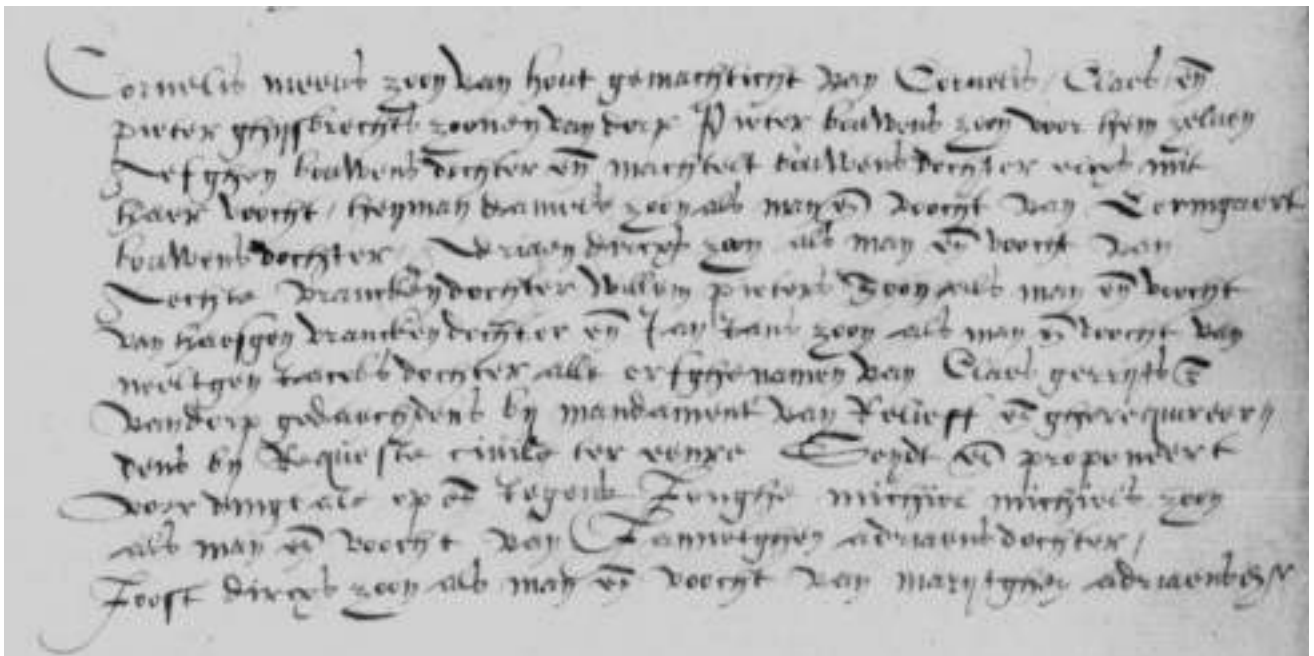 Cornelis meeus zoon van hout gemachticht van Cornelis / Claes / en̄
pieter ghijsbrechts zoonen van dorp Pieter bouwens zoon voor hem zeluen
bouwens dochter en̄ machtelt bouwens dochter elcx mit
haer voocht / heyman daniels zoon als man en̄ voocht van Eermgaert
bouwens dochter / Adriaen dircxs zoon als man en̄ voocht van
vrancken dochter willem pieters zoon als man en̄ voocht
van haesgen vrancken dochter en̄ Jan Jans zoon als man en̄ voocht van
neeltgen Jacobs dochter alle erfghenamen van Claes gerryts z
vandorp gedaechdens by mandament van Relieff en̄ gherequireer//
dens by Requeste ciuile ter eenre Seydt en̄ proponeert
voor dinge als op en̄ Jegens michiel michiels zoon
als man en̄ voocht van Fannetghen adriaens dochter /
Joost dircxs zoon als man en̄ voocht van marytghen adriaens